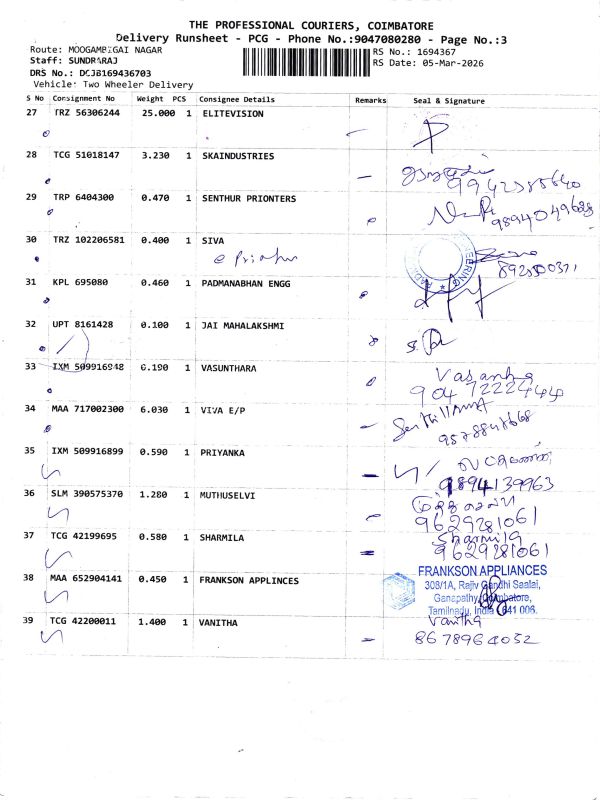 THE PROFESSIONAL COURIERS, COIMBATORE
Delivery Runsheet - PCG - Phone No.:9047080280 - Page No.:3
Route: MOOGAMBIGAI NAGAR
RS No.: 1694367
Staff: SUNDRARAJ
RS Date: 05-Mar-2026
DRS No.: DCJB169436703
Vehicle: Two Wheeler Delivery
S No Consignment No Weight PCS Consignee Details Remarks Seal & Signature
27 TRZ 56306244 25.000 1 ELITEVISION
28 TCG 51018147 3.230 1 SKAINDUSTRIES
29 TRP 6404300 0.470 1 SENTHUR PRIONTERS
9894049688
30 TRZ 102206581 0.400 1 SIVA
31 KPL 695080 0.460 1 PADMANABHAN ENGG
32 UPT 8161428 0.100 1 JAI MAHALAKSHMI
33 IXM 509916948 0.190 1 VASUNTHARA
9047222444
34 MAA 717002300 6.030 1 VIVA E/P
35 IXM 509916899 0.590 1 PRIYANKA
9894139963
36 SLM 390575370 1.280 1 MUTHUSELVI
9629281061
37 TCG 42199695 0.580 1 SHARMILA
Sharmila
9629281061
38 MAA 652904141 0.450 1 FRANKSON APPLINCES
FRANKSON APPLIANCES
308/1A, Rajiv Gandhi Saalai,
Ganapathy, Coimbatore,
Tamilnadu, India 641 006.
39 TCG 42200011 1.400 1 VANITHA
Vanitha
8678964032